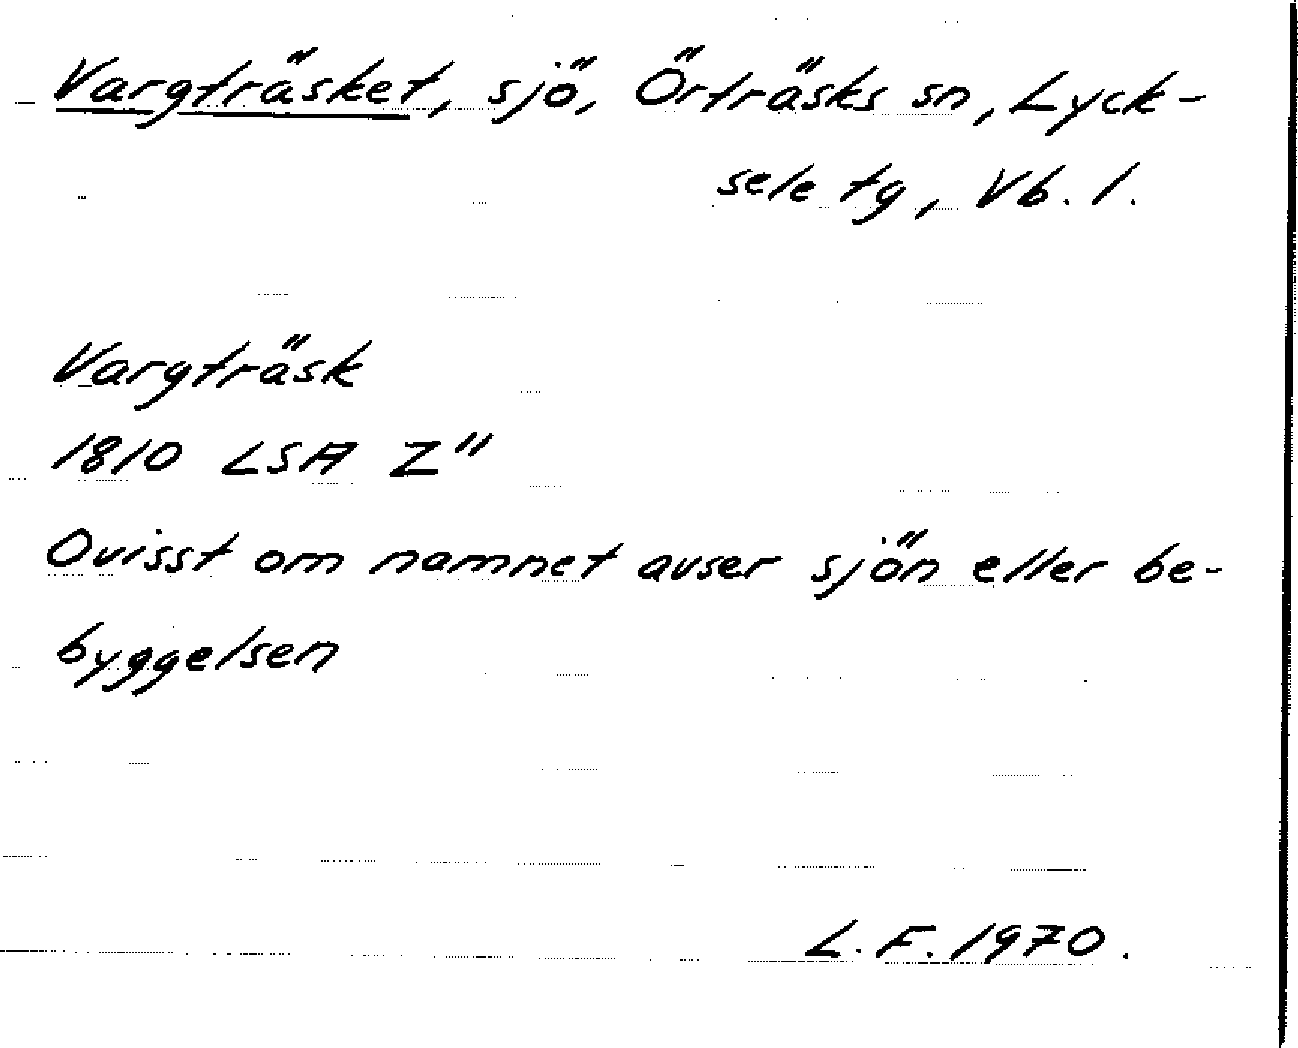 Vargträsket, sjö, Örträsks sn, Lyck-
sele tg, Vb. l.
Vargträsk
1810 LSA Z"
Ovisst om namnet avser sjön eller be-
byggelsen
L. F. 1970.